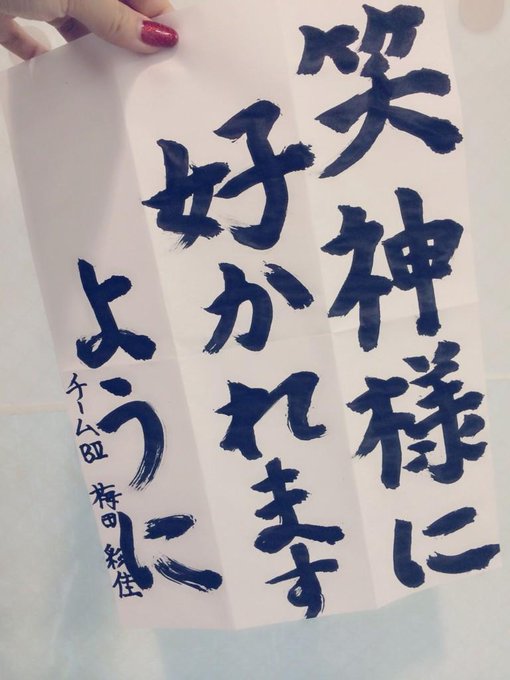 笑神様に
好かれます
ように
チームBⅡ 梅田 彩佳